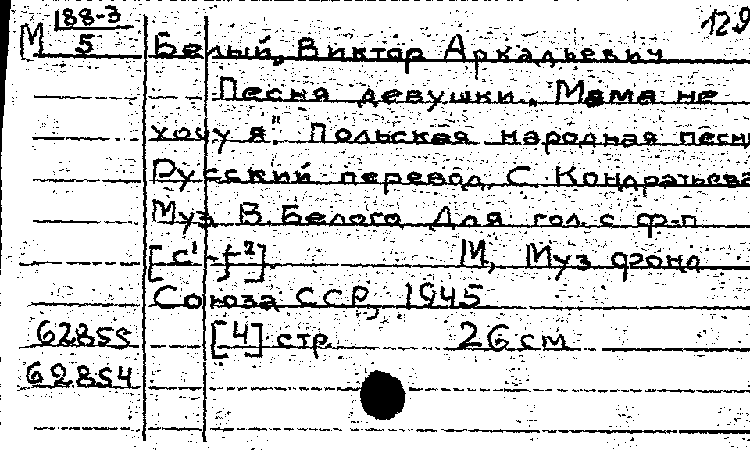 М 188-3 129
5 Белый, Виктор Аркадьевич
Песня девушки. "Мама не
хочу я". Польская народная песн
Русский перевод С. Кондратьева
Муз. В. Белого Для гол. с ф-п
[c¹-f²] М, Муз фонд
Союза ССР, 1945
62855 [4] стр. 26 см
62854